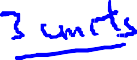 3 units